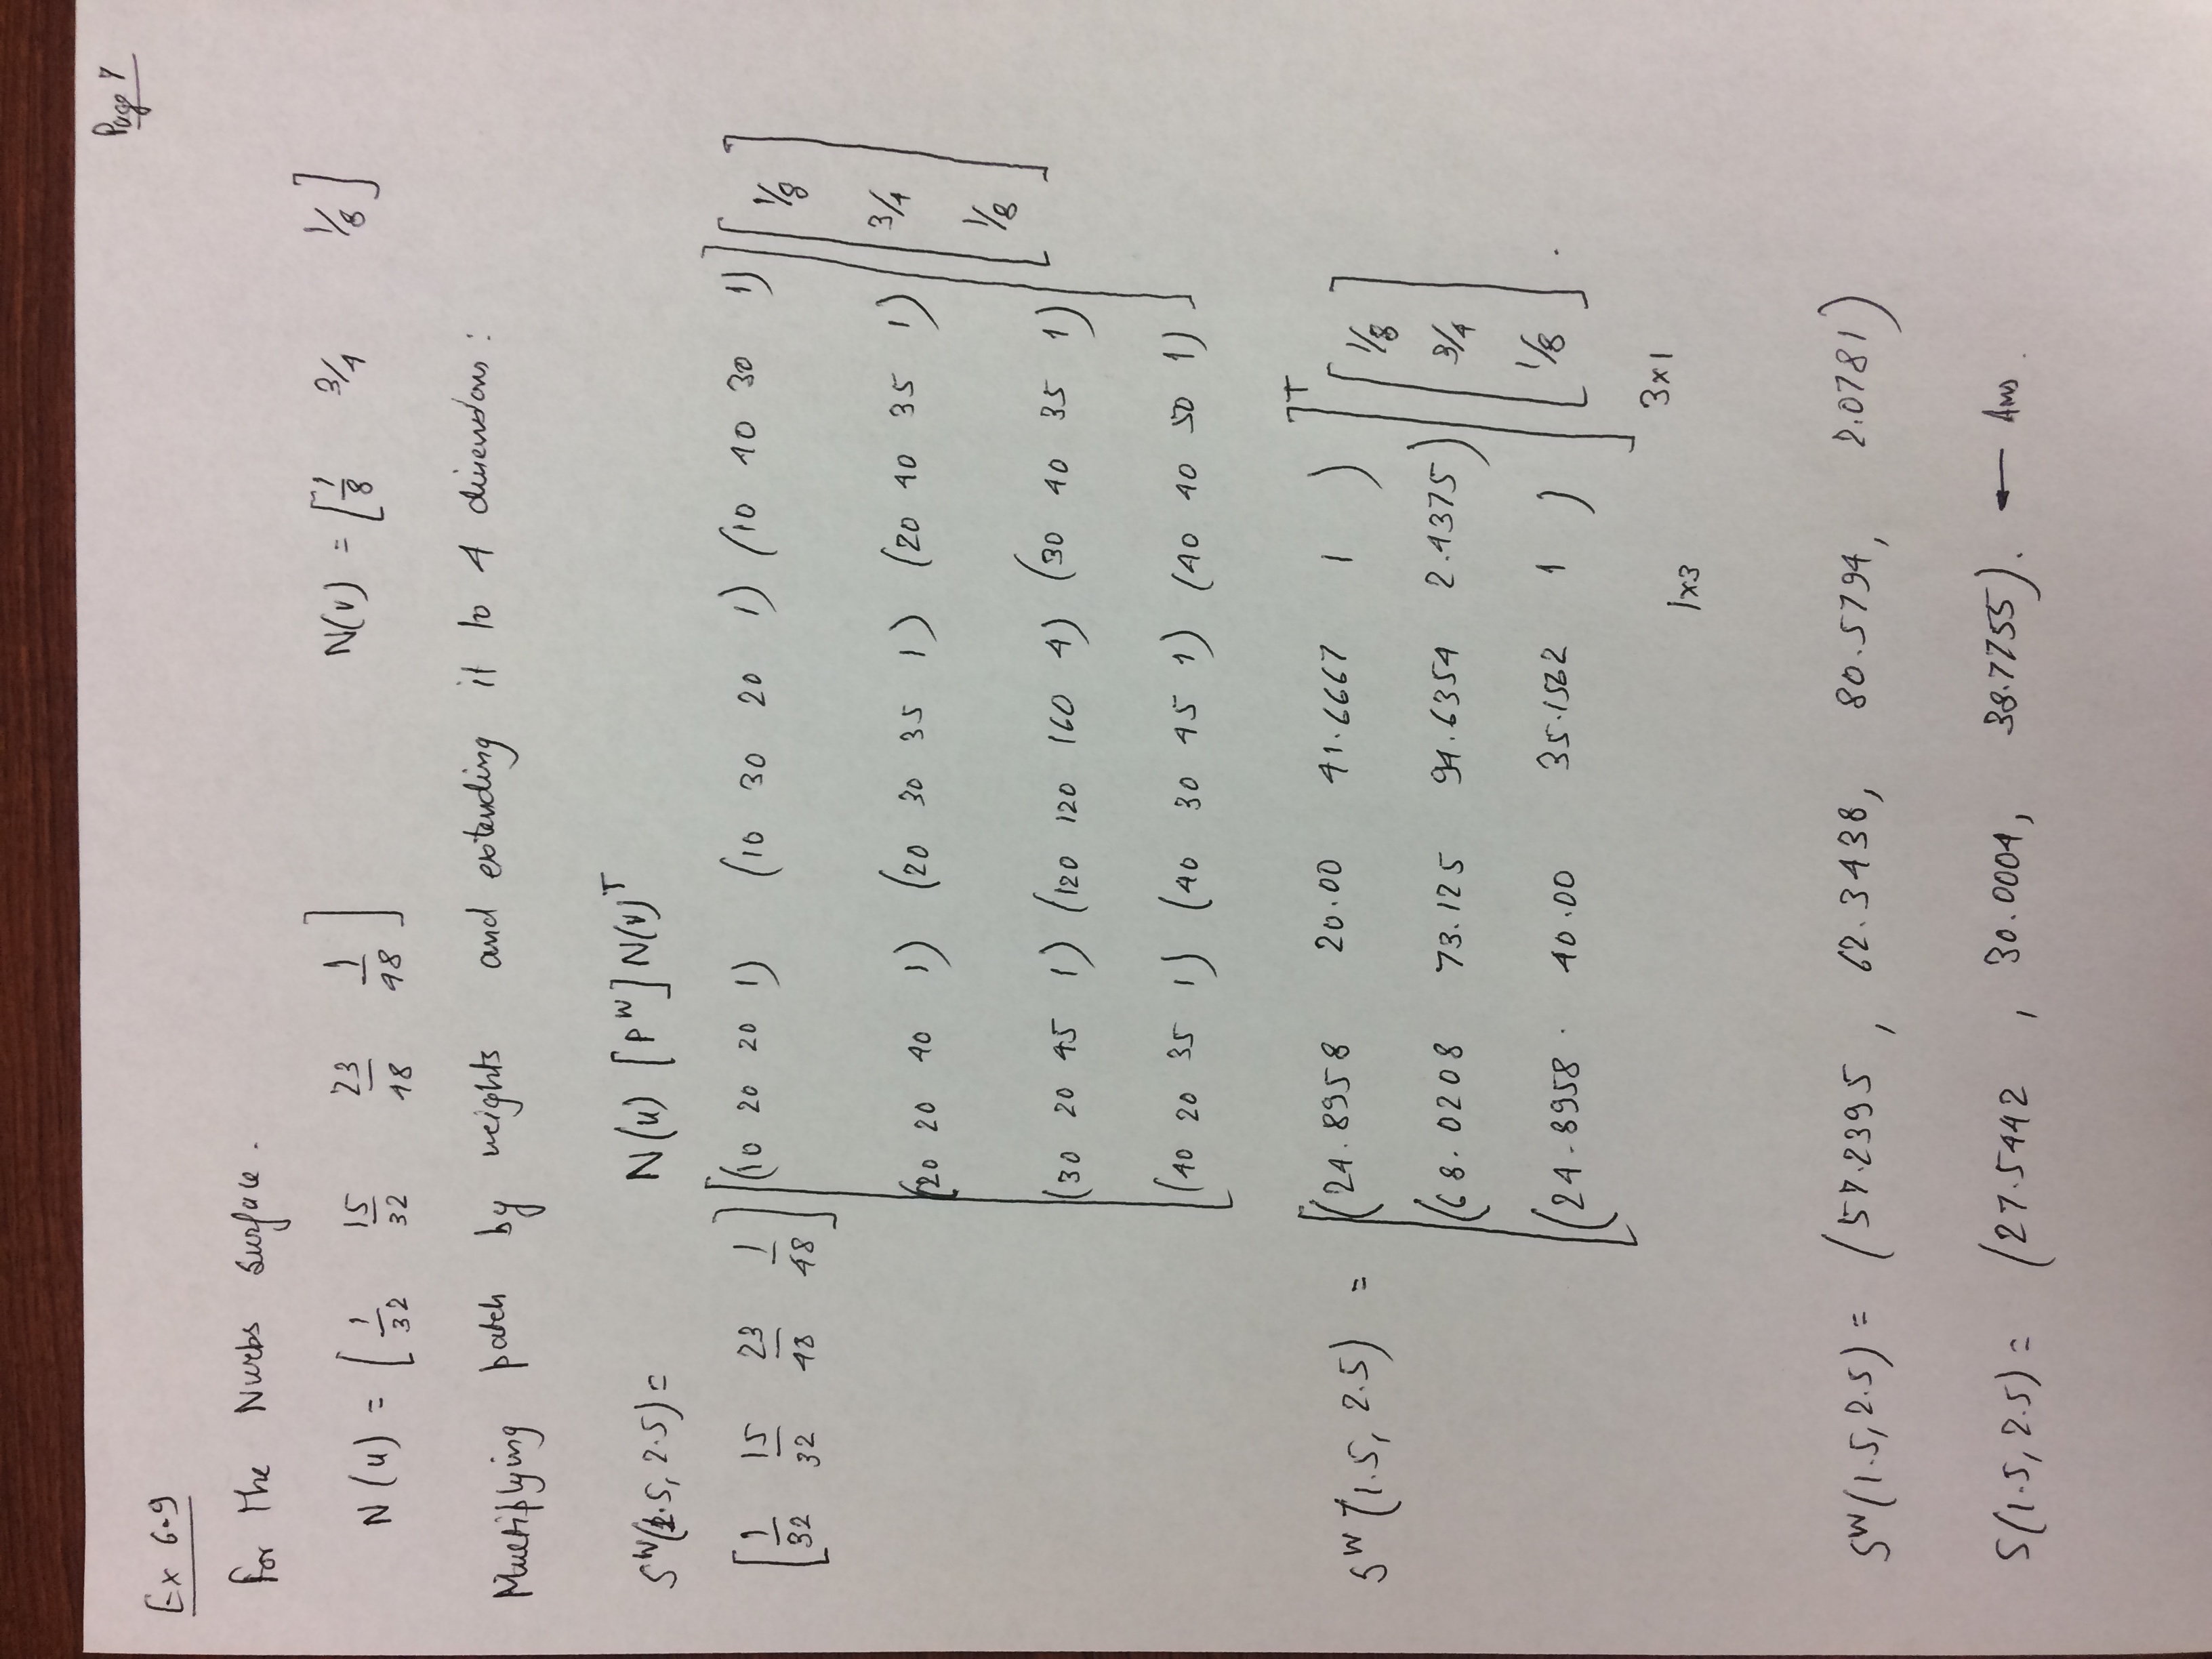 Page 7
Ex 6.9
For the Nurbs surface.
N(u) = [ 1/32 15/32 23/48 1/48 ] N(v) = [ 1/8 3/4 1/8 ]
Multiplying patch by weights and extending it to 4 dimensions:
S^W(1.5, 2.5) = N(u) [P^W] N(v)^T
[ 1/32 15/32 23/48 1/48 ] [ (10 20 20 1) (10 30 20 1) (10 40 30 1) ] [ 1/8
(20 20 40 1) (20 30 35 1) (20 40 35 1) 3/4
(30 20 45 1) (120 120 160 4) (30 40 35 1) 1/8 ]
(40 20 35 1) (40 30 45 1) (40 40 50 1)
S^W(1.5, 2.5) = [ (24.8958 20.00 41.6667 1) ]^T [ 1/8
(68.0208 73.125 94.6354 2.4375) 3/4
(24.8958 40.00 35.1562 1) 1/8 ].
1x3 3x1
S^W(1.5, 2.5) = (57.2395, 62.3438, 80.5794, 2.0781)
S(1.5, 2.5) = (27.5442, 30.0004, 38.7755). ← Ans.